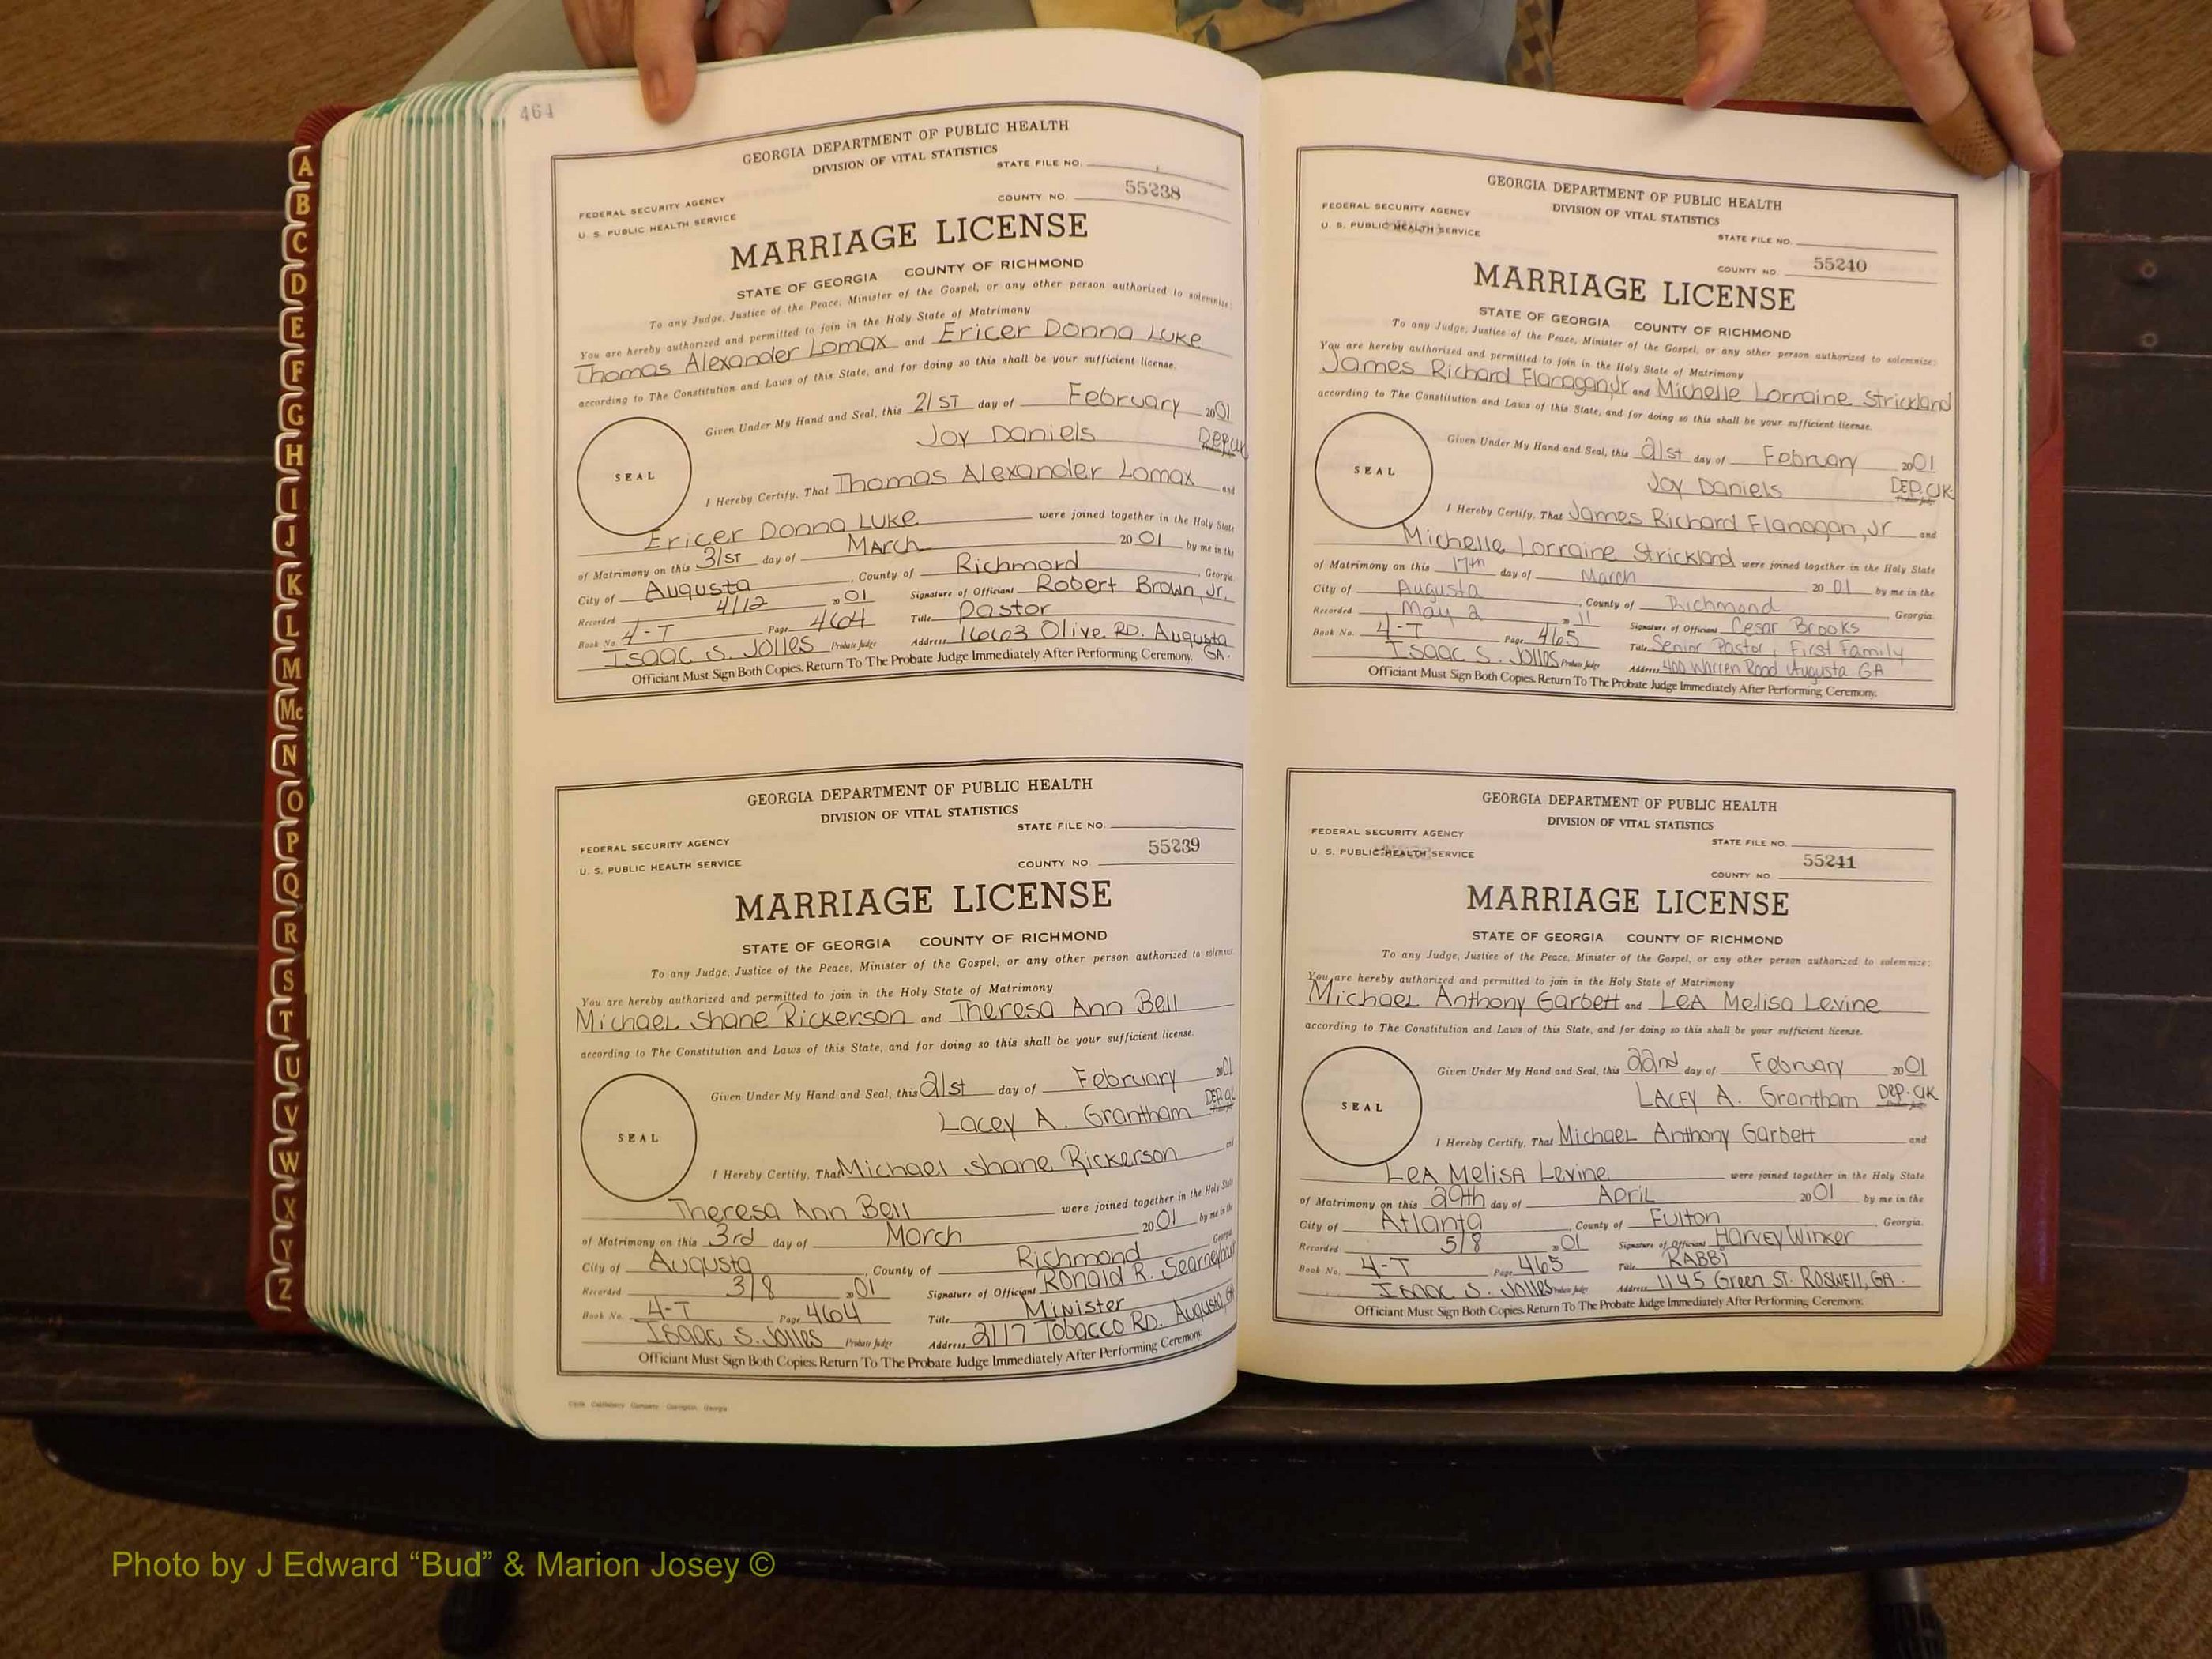 A
B
C
D
E
F
G
H
I
J
K
L
M
Mc
N
O
P
Q
R
S
T
U
V
W
X
Y
Z
464
GEORGIA DEPARTMENT OF PUBLIC HEALTH
DIVISION OF VITAL STATISTICS
STATE FILE NO.
FEDERAL SECURITY AGENCY
U. S. PUBLIC HEALTH SERVICE
COUNTY NO. 55238
MARRIAGE LICENSE
STATE OF GEORGIA COUNTY OF RICHMOND
To any Judge, Justice of the Peace, Minister of the Gospel, or any other person authorized to solemnize:
You are hereby authorized and permitted to join in the Holy State of Matrimony
Thomas Alexander Lomax and Ericer Donna Luke
according to The Constitution and Laws of this State, and for doing so this shall be your sufficient license.
Given Under My Hand and Seal, this 21ST day of February 2001
Joy Daniels
SEAL
I Hereby Certify, That Thomas Alexander Lomax and
Ericer Donna Luke were joined together in the Holy State
of Matrimony on this 31ST day of March 2001 by me in the
City of Augusta, County of Richmond, Georgia
Recorded 4/12 2001 Signature of Officiant Robert Brown, Jr.
Book No. 4-T Page 464 Title Pastor
Isaac S. Jolles Probate Judge Address 1663 Olive RD. Augusta GA.
Officiant Must Sign Both Copies. Return To The Probate Judge Immediately After Performing Ceremony.
GEORGIA DEPARTMENT OF PUBLIC HEALTH
DIVISION OF VITAL STATISTICS
STATE FILE NO.
FEDERAL SECURITY AGENCY
U. S. PUBLIC HEALTH SERVICE
COUNTY NO. 55239
MARRIAGE LICENSE
STATE OF GEORGIA COUNTY OF RICHMOND
To any Judge, Justice of the Peace, Minister of the Gospel, or any other person authorized to solemnize:
You are hereby authorized and permitted to join in the Holy State of Matrimony
Michael Shane Rickerson and Theresa Ann Bell
according to The Constitution and Laws of this State, and for doing so this shall be your sufficient license.
Given Under My Hand and Seal, this 21st day of February 2001
Lacey A. Grantham DEP. CLK
SEAL
I Hereby Certify, That Michael Shane Rickerson and
Theresa Ann Bell were joined together in the Holy State
of Matrimony on this 3rd day of March 2001 by me in the
City of Augusta, County of Richmond Georgia
Recorded 3/8 2001 Signature of Officiant Ronald R.
Book No. 4-T Page 464 Title Minister
Isaac S. Jolles Probate Judge Address 2117 Tobacco RD. Augusta, GA
Officiant Must Sign Both Copies. Return To The Probate Judge Immediately After Performing Ceremony.
GEORGIA DEPARTMENT OF PUBLIC HEALTH
DIVISION OF VITAL STATISTICS
FEDERAL SECURITY AGENCY
U. S. PUBLIC HEALTH SERVICE
STATE FILE NO.
COUNTY NO. 55240
MARRIAGE LICENSE
STATE OF GEORGIA COUNTY OF RICHMOND
To any Judge, Justice of the Peace, Minister of the Gospel, or any other person authorized to solemnize:
You are hereby authorized and permitted to join in the Holy State of Matrimony
James Richard Flanagan, Jr and Michelle Lorraine Strickland
according to The Constitution and Laws of this State, and for doing so this shall be your sufficient license.
Given Under My Hand and Seal, this 21st day of February 2001
Joy Daniels DEP. CLK
SEAL
I Hereby Certify, That James Richard Flanagan, Jr and
Michelle Lorraine Strickland were joined together in the Holy State
of Matrimony on this 17th day of March 2001 by me in the
City of Augusta, County of Richmond Georgia.
Recorded May 2 11 Signature of Officiant Cesar Brooks
Book No. 4-T Page 465 Title Senior Pastor, First Family
Isaac S. Jolles Probate Judge Address 400 Warren Road Augusta GA
Officiant Must Sign Both Copies. Return To The Probate Judge Immediately After Performing Ceremony.
GEORGIA DEPARTMENT OF PUBLIC HEALTH
DIVISION OF VITAL STATISTICS
FEDERAL SECURITY AGENCY
U. S. PUBLIC HEALTH SERVICE
STATE FILE NO.
COUNTY NO. 55241
MARRIAGE LICENSE
STATE OF GEORGIA COUNTY OF RICHMOND
To any Judge, Justice of the Peace, Minister of the Gospel, or any other person authorized to solemnize:
You are hereby authorized and permitted to join in the Holy State of Matrimony
Michael Anthony Garbett and LeA Melisa Levine
according to The Constitution and Laws of this State, and for doing so this shall be your sufficient license.
Given Under My Hand and Seal, this 22nd day of February 2001
LACEY A. Grantham DEP. CLK
SEAL
I Hereby Certify, That Michael Anthony Garbett and
LeA Melisa Levine were joined together in the Holy State
of Matrimony on this 29th day of April 2001 by me in the
City of Atlanta, County of Fulton Georgia.
Recorded 5/8 2001 Signature of Officiant Harvey Winker
Book No. 4-T Page 465 Title RABBi
Isaac S. Jolles Probate Judge Address 1145 Green ST. ROSWELL, GA.
Officiant Must Sign Both Copies. Return To The Probate Judge Immediately After Performing Ceremony.
Photo by J Edward “Bud” & Marion Josey ©